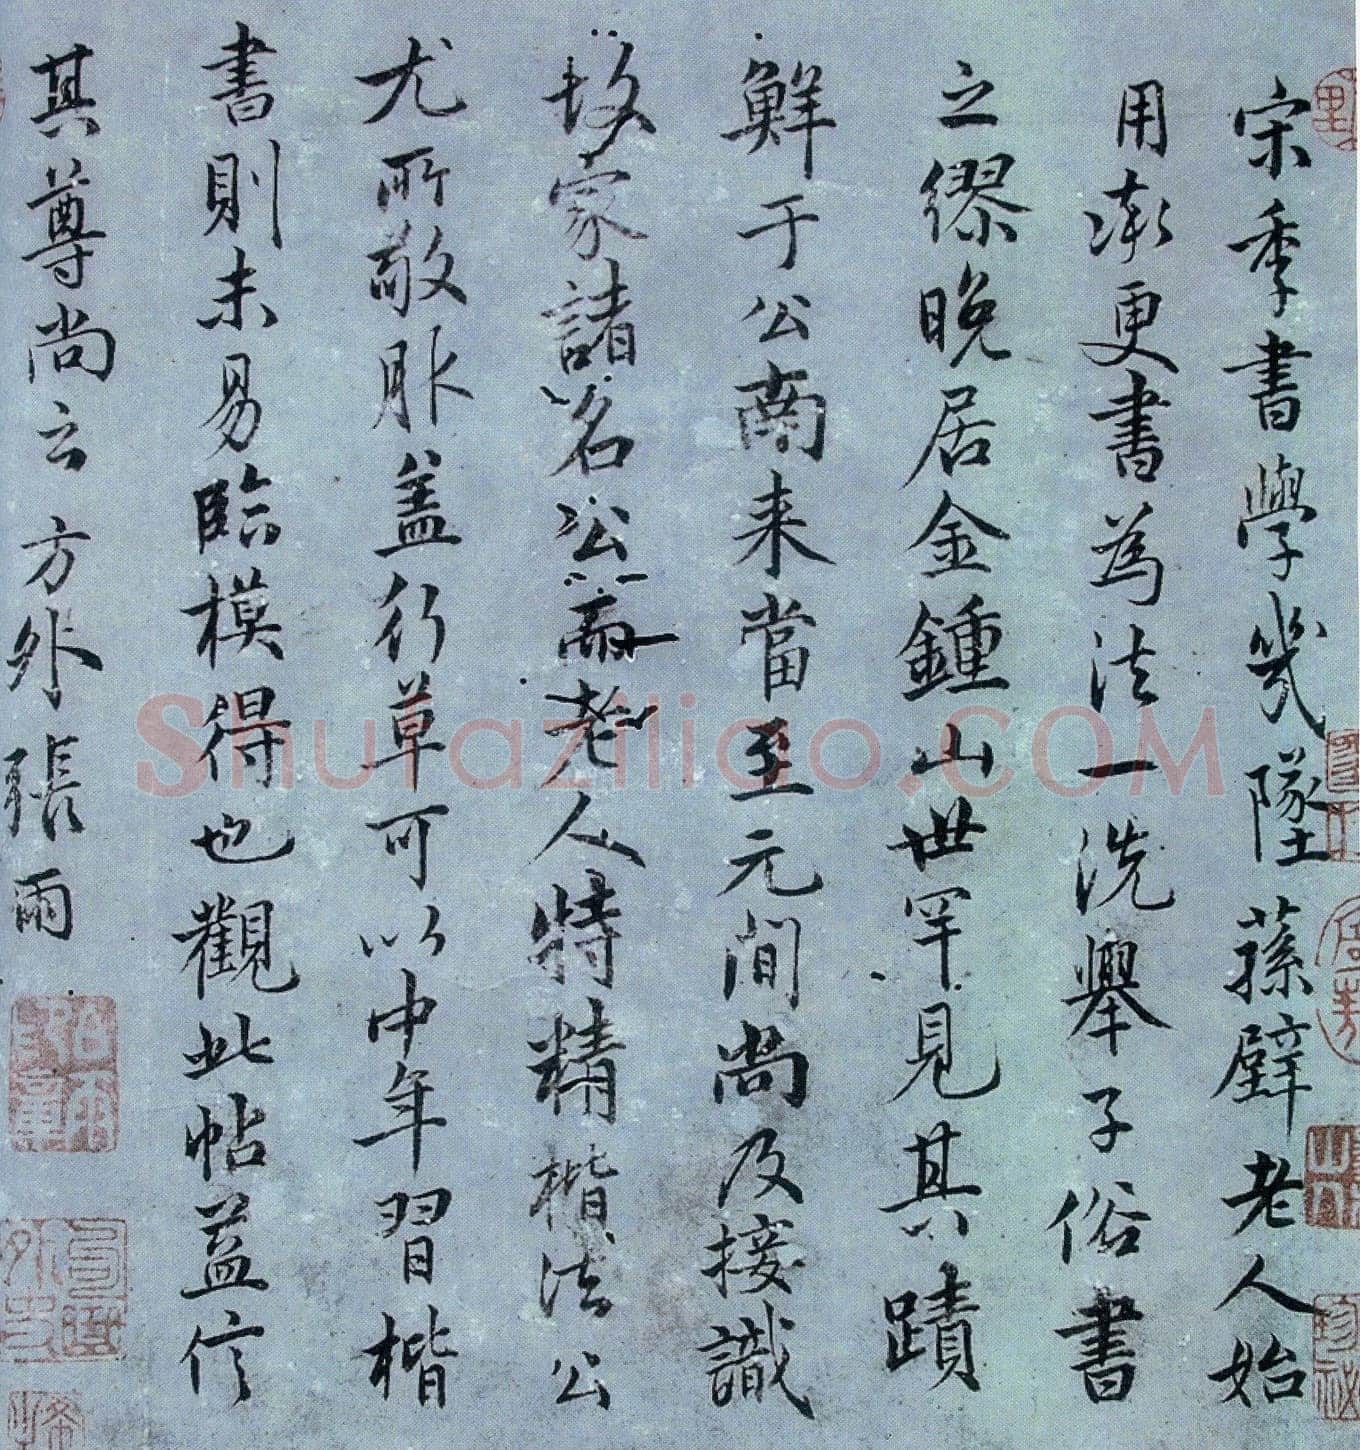 宋季書學幾墜蓀壁老人始
用漸更書為法一洗舉子俗書
之繆晚居金鍾山世罕見其蹟
鮮于公南来當至元間尚及接識
故家諸名公而老人特精楷法公
尤所敬服盖行草可以中年習楷
書則未易臨模得也觀此帖益信
其尊尚云方外張雨
shufaziliao.COM